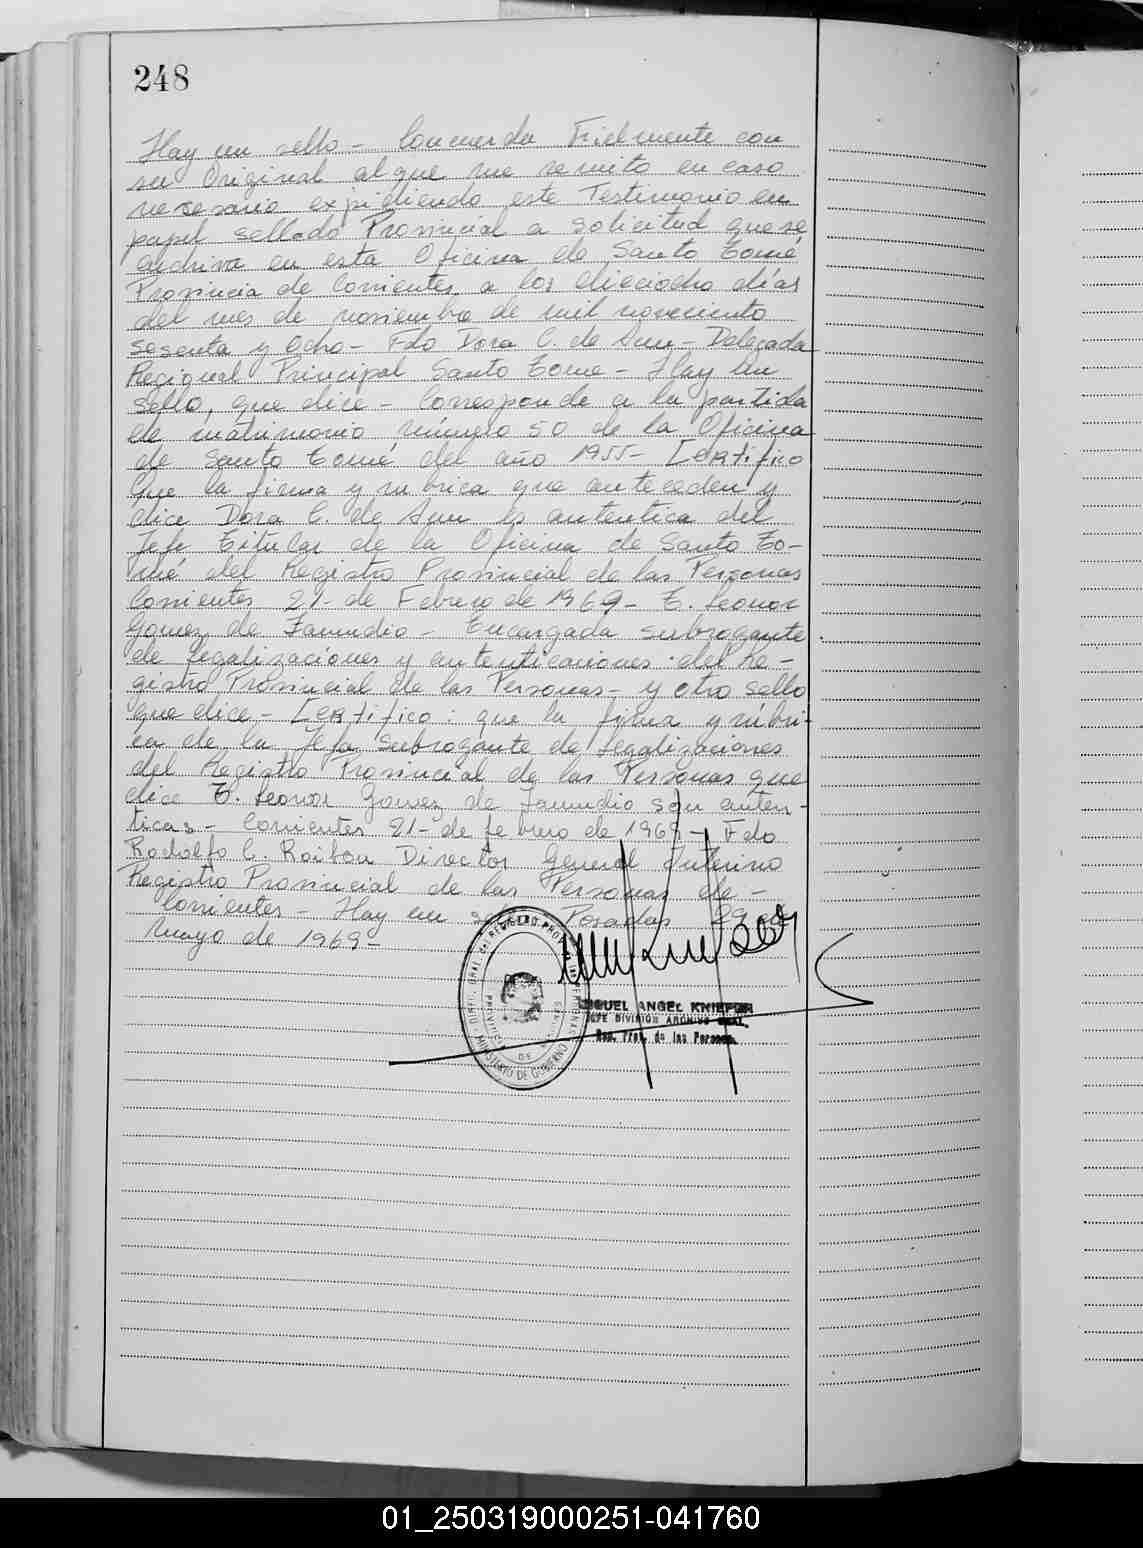 248
Hay un sello - Concuerda Fielmente con
su Original al que me remito en caso
necesario expidiendo este Testimonio en
papel sellado Provincial a solicitud que se
archiva en esta Oficina de Santo Tomé
Provincia de Corrientes a los dieciocho días
del mes de noviembre de mil novecientos
sesenta y Ocho - Fdo Dora C. de - Delegada
Regional Principal Santo Tome - Hay un
sello, que dice - Corresponde a la partida
de matrimonio número 50 de la Oficina
de Santo Tomé del año 1955 - Certifico
que la firma y rubrica que anteceden y
dice Dora C. de es autentica del
Jefe Titular de la Oficina de Santo To-
mé del Registro Provincial de las Personas
Corrientes 21 - de Febrero de 1969 - T. Leonor
Gomez de - Encargada subrogante
de Legalizaciones y autenticaciones del Re-
gistro Provincial de las Personas - y otro sello
que dice - Certifico: que la firma y rúbri-
ca de la Jefa Subrogante de Legalizaciones
del Registro Provincial de las Personas que
dice T. Leonor Gomez de son auten-
ticas - Corrientes 21 - de febrero de 1969 - Fdo
Rodolfo C. Director General Interino
Registro Provincial de las Personas de -
Corrientes - Hay un sello Posadas 29 de
Mayo de 1969 -
MIGUEL ANGEL
JEFE DIVISION ARCHIVO GRAL.
Reg. Prov. de las Personas
MINISTERIO DE GOBIERNO
01_250319000251-041760